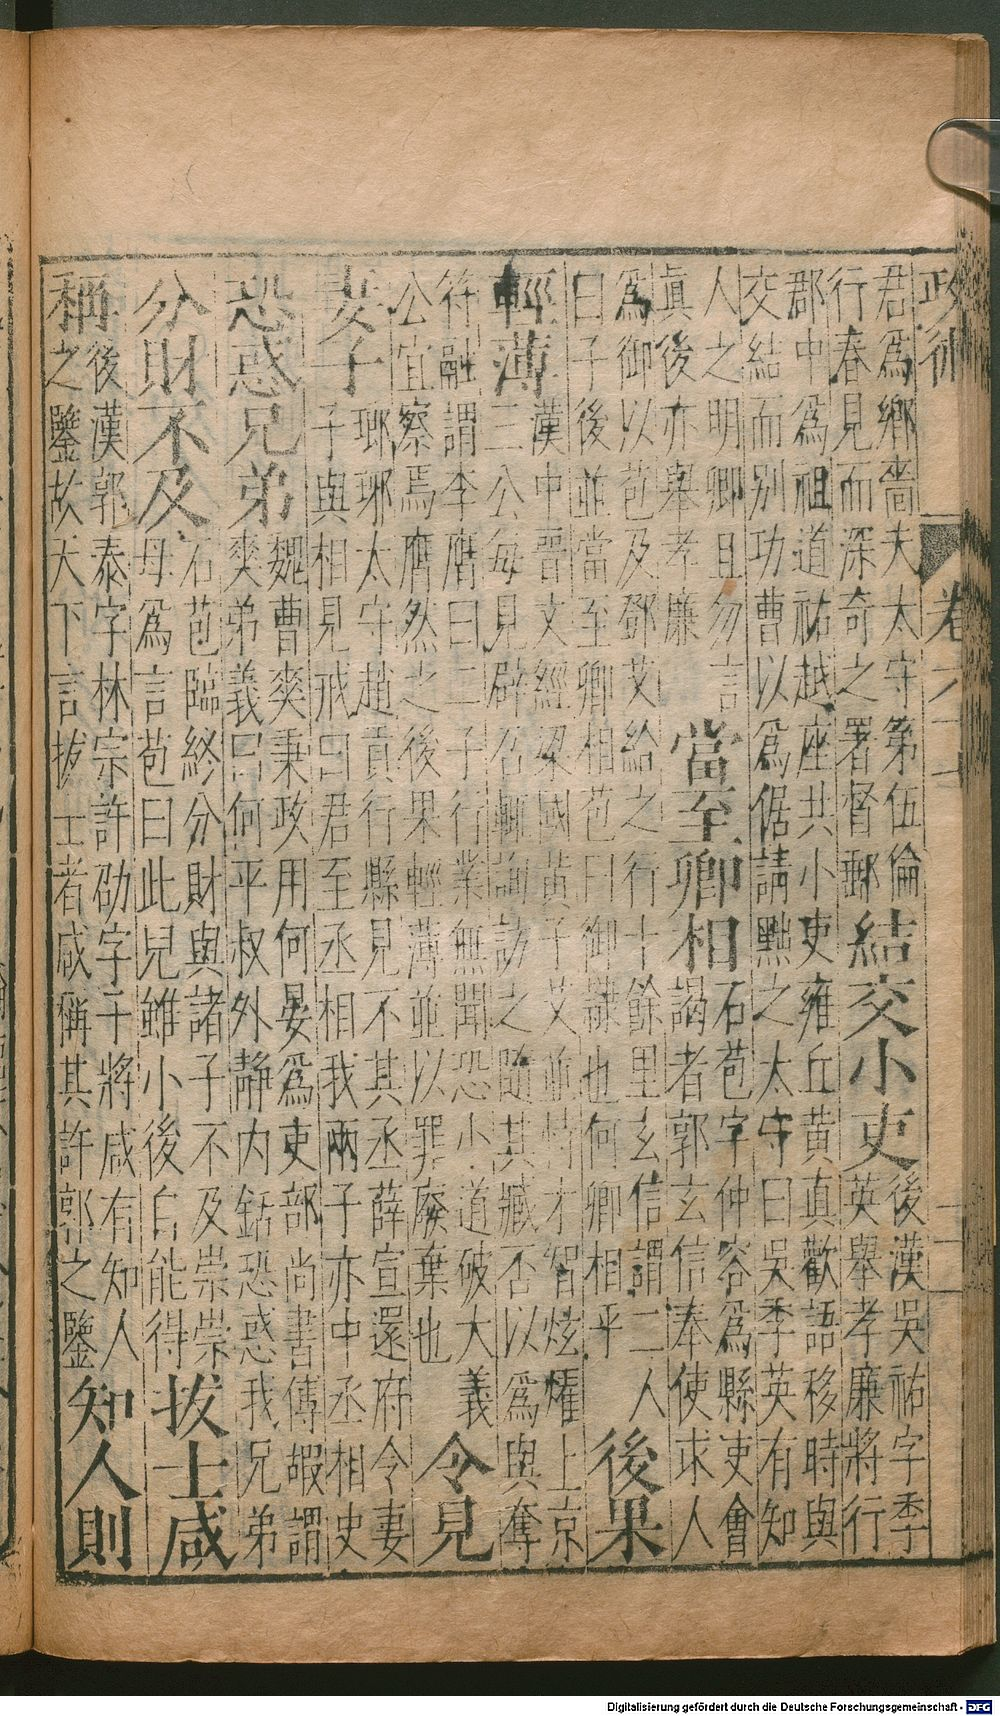 政術 卷六
君爲鄉嗇夫太守第伍倫
行春見而深奇之署督郵
結交小吏
後漢吳祐字季
英舉孝廉將行
郡中爲祖道祐越座共小吏雍丘黃真歡語移時與
交結而別功曹以爲倨請黜之太守曰吳季英有知
人之明卿且勿言
眞後亦舉孝廉
當至卿相
石苞字仲容爲縣吏會
謁者郭玄信奉使求人
爲御以苞及鄧艾給之行十餘里玄信謂二人
曰子後並當至卿相苞曰御隸也何卿相乎
後果
輕薄
漢中晉文經梁國黃子艾並恃才智炫燿上京
三公每見辟召輒詢訪之隨其臧否以爲與奪
符融謂李膺曰二子行業無聞恐小道破大義
公宜察焉膺然之後果輕薄並以罪廢棄也
令見
妻子
瑯琊太守趙貢行縣見不其丞薛宣還府令妻
子與相見戒曰君至丞相我兩子亦中丞相史
恐惑兄弟
魏曹爽秉政用何晏爲吏部尚書傅嘏謂
爽弟義曰何平叔外靜内銛恐惑我兄弟
分財不及
石苞臨終分財與諸子不及崇崇
母爲言苞曰此兒雖小後自能得
拔士咸
稱
後漢郭泰字林宗許劭字子將咸有知人
之鑒故天下言拔士者咸稱其許郭之鑒
知人則
Digitalisierung gefördert durch die Deutsche Forschungsgemeinschaft - DFG